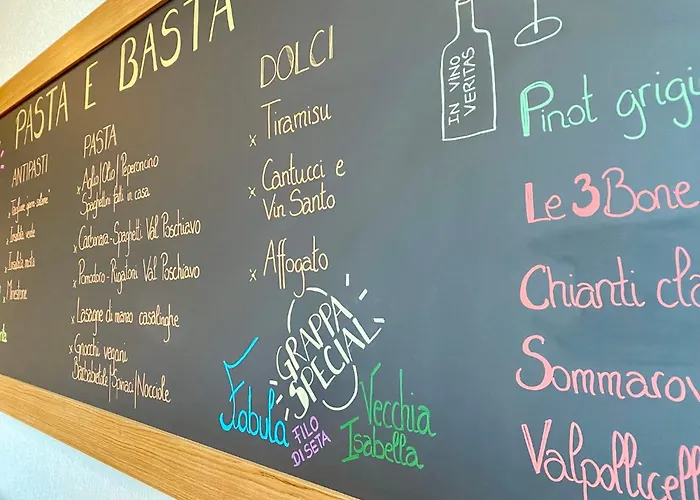 PASTA E BASTA
ANTIPASTI
Insalata verde
Insalata mista
Minestrone
PASTA
x Aglio/Olio/Peperoncino
Spaghettini fatti in casa
x Carbonara-Spaghetti Val Poschiavo
x Pomodoro-Rigatoni Val Poschiavo
x Lasagne di manzo casalinghe
x Gnocchi vegani
Barbabietole/Spinaci/Nocciole
DOLCI
x Tiramisu
x Cantucci e
Vin Santo
x Affogato
GRAPPA
SPECIAL
Fabula
FILO
DI SETA
Vecchia
Isabella
IN VINO
VERITAS
Pinot grigi
Le 3 Bone
Chianti cla
Sommarov
Valpollicell